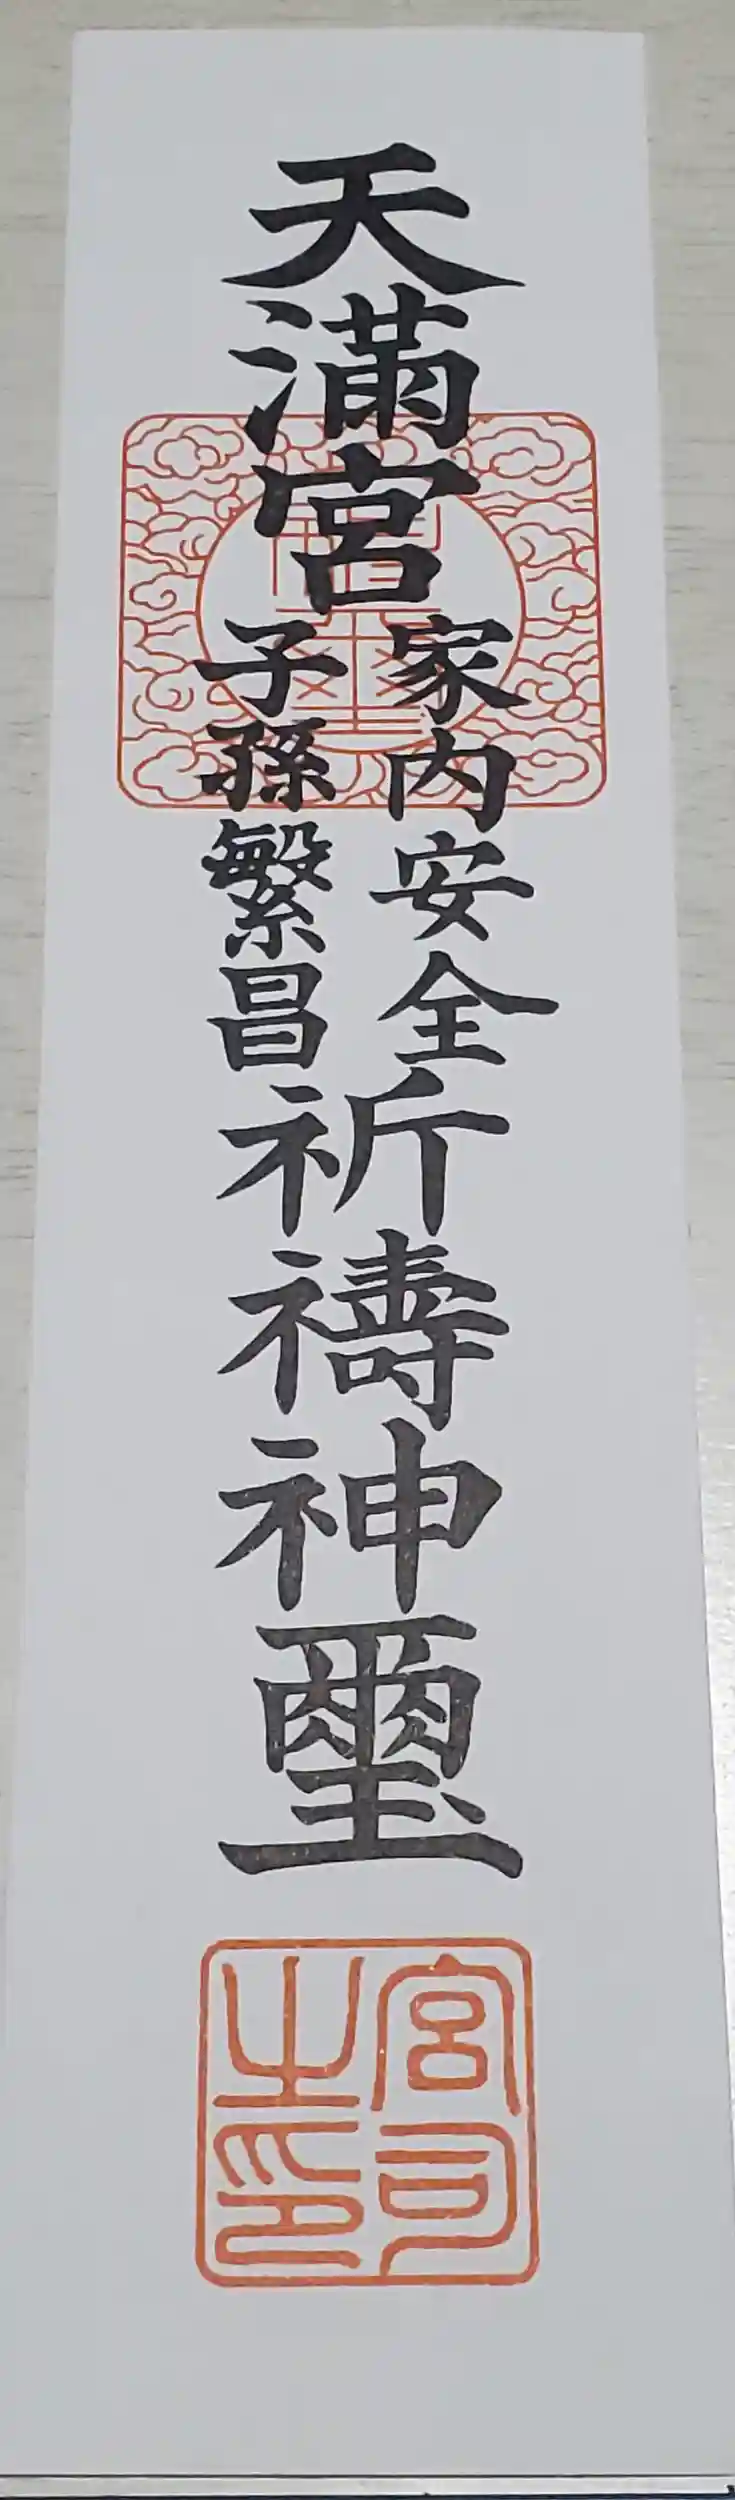 天満宮
家内安全
子孫繁昌
祈禱神璽
宮司
之印